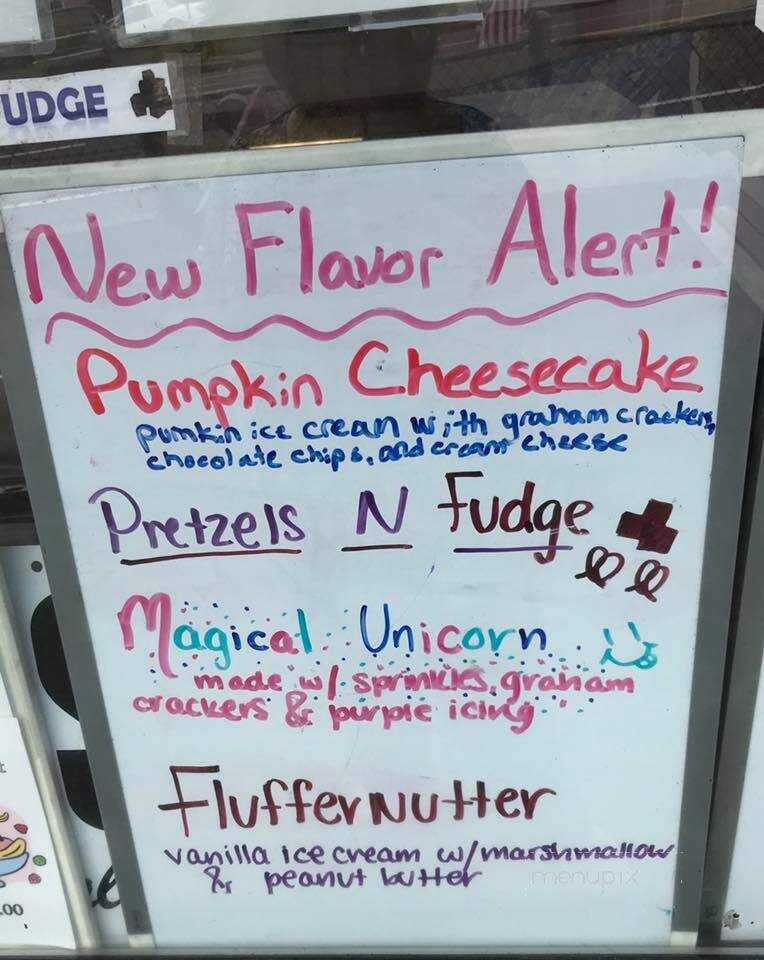 UDGE
New Flavor Alert!
Pumpkin Cheesecake
pumkin ice cream with graham crackers,
chocolate chips, and cream cheese
Pretzels N Fudge
Magical Unicorn
made w/ sprinkles, graham
crackers & purple icing
FlufferNutter
vanilla ice cream w/marshmallow
& peanut butter
menupix
.00